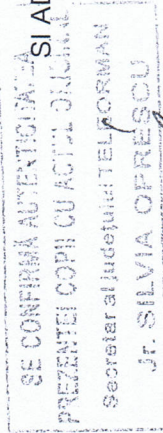 SE CONFIRMĂ AUTENTICITATEA
PREZENTEI COPII CU ACTUL ORIGINAL
Secretar al județului TELEORMAN
jr. SILVIA OPRESCU
SI AD